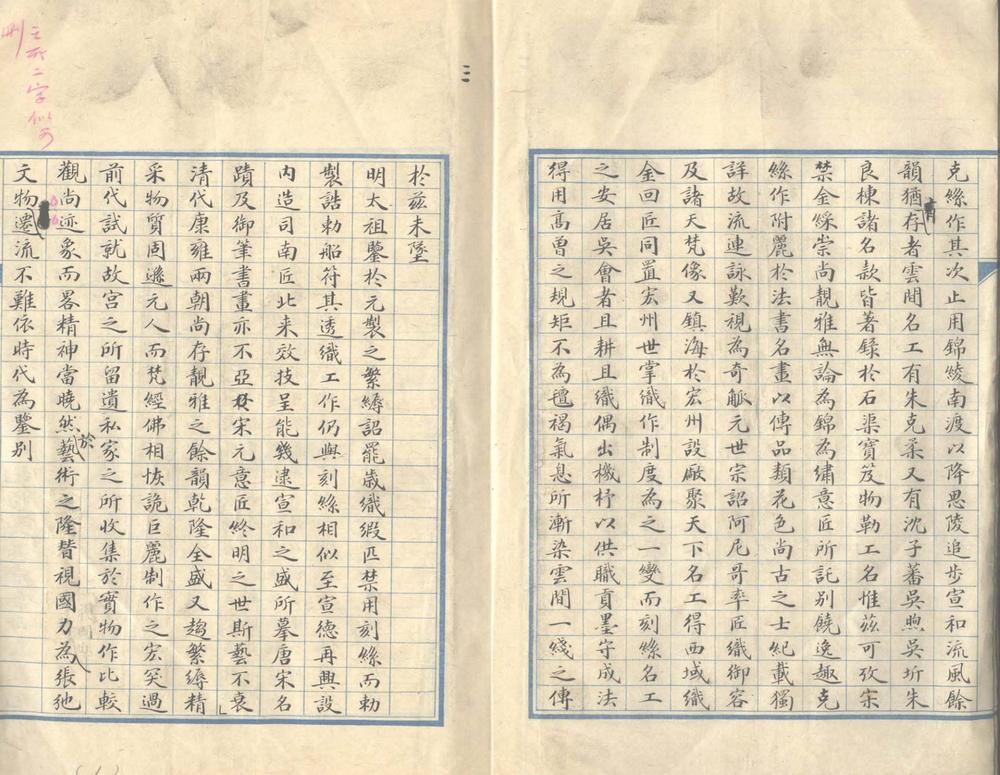 克絲作其次止用錦綾南渡以降思陵追步宣和流風餘
韻猶有存者雲間名工有朱克柔又有沈子蕃吳煦吳圻朱
良棟諸名款皆著錄於石渠寶笈物勒工名惟茲可攷宋
禁金綵崇尚靚雅無論為錦為繡意匠所託別饒逸趣克
絲作附麗於法書名畫以傳品類花色尚古之士紀載獨
詳故流連詠歎視為奇觚元世宗詔阿尼哥率匠織御容
及諸天梵像又鎮海於宏州設廠聚天下名工得西域織
金回匠同置宏州世掌織作制度為之一變而刻絲名工
之安居吳會者且耕且織偶出機杼以供職貢墨守成法
得用高曾之規矩不為氊褐氣息所漸染雲間一綫之傳
於茲未墜
明太祖鑒於元製之繁縟詔罷歲織緞匹禁用刻絲而勅
製誥勅船符其透織工作仍與刻絲相似至宣德再興設
內造司南匠北来效技呈能幾逮宣和之盛所摹唐宋名
蹟及御筆書畫亦不亞於宋元意匠終明之世斯藝不衰
清代康雍兩朝尚存靚雅之餘韻乾隆全盛又趨繁縟精
采物質固遜元人而梵經佛相恢詭巨麗制作之宏突過
前代試就故宮之所留遺私家之所收集於實物作比較
觀尚迹象而畧精神當曉然於藝術之隆替視國力為張弛
文物遷流不難依時代為鑒別
三
之所二字似可
刪